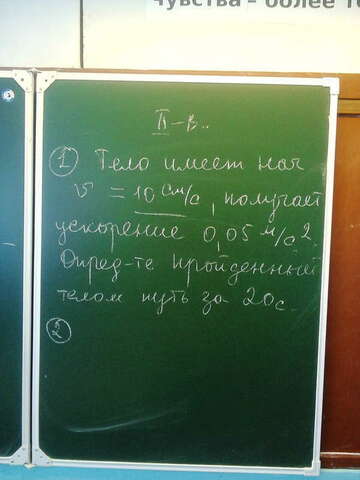 чувства – более
II-в..
① Тело имеет нач
v = 10 см/с, получает
ускорение 0,05 м/с2.
Опред-те пройденный
телом путь за 20с.
②